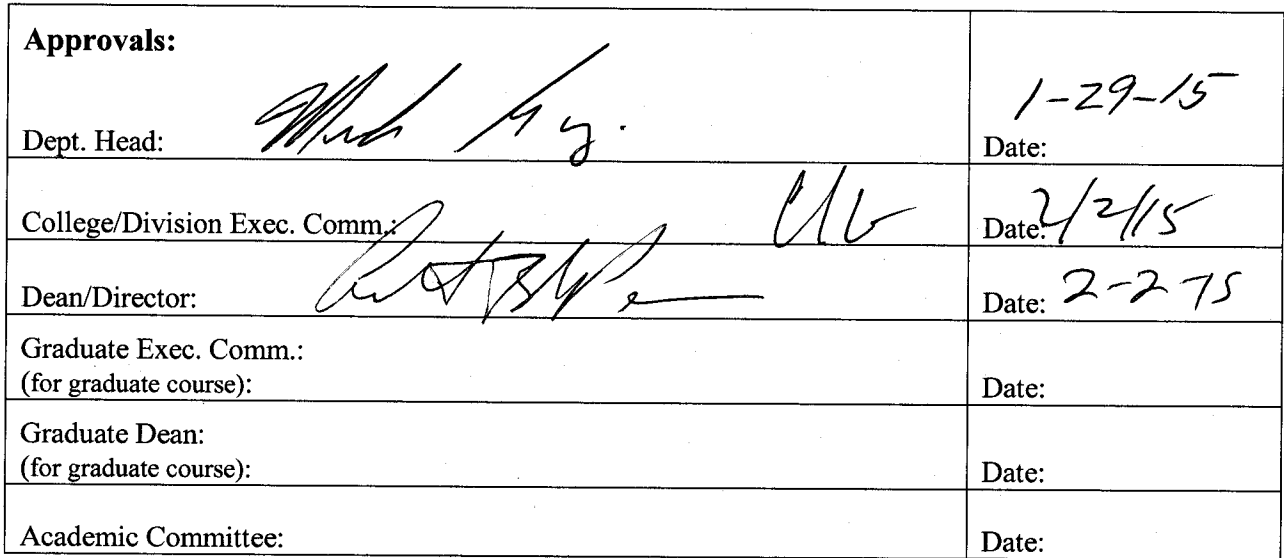 Approvals:
1-29-15
Dept. Head:
Date:
College/Division Exec. Comm.:
Date: 2/2/15
Dean/Director:
Date: 2-2-15
Graduate Exec. Comm.:
(for graduate course):
Date:
Graduate Dean:
(for graduate course):
Date:
Academic Committee:
Date: